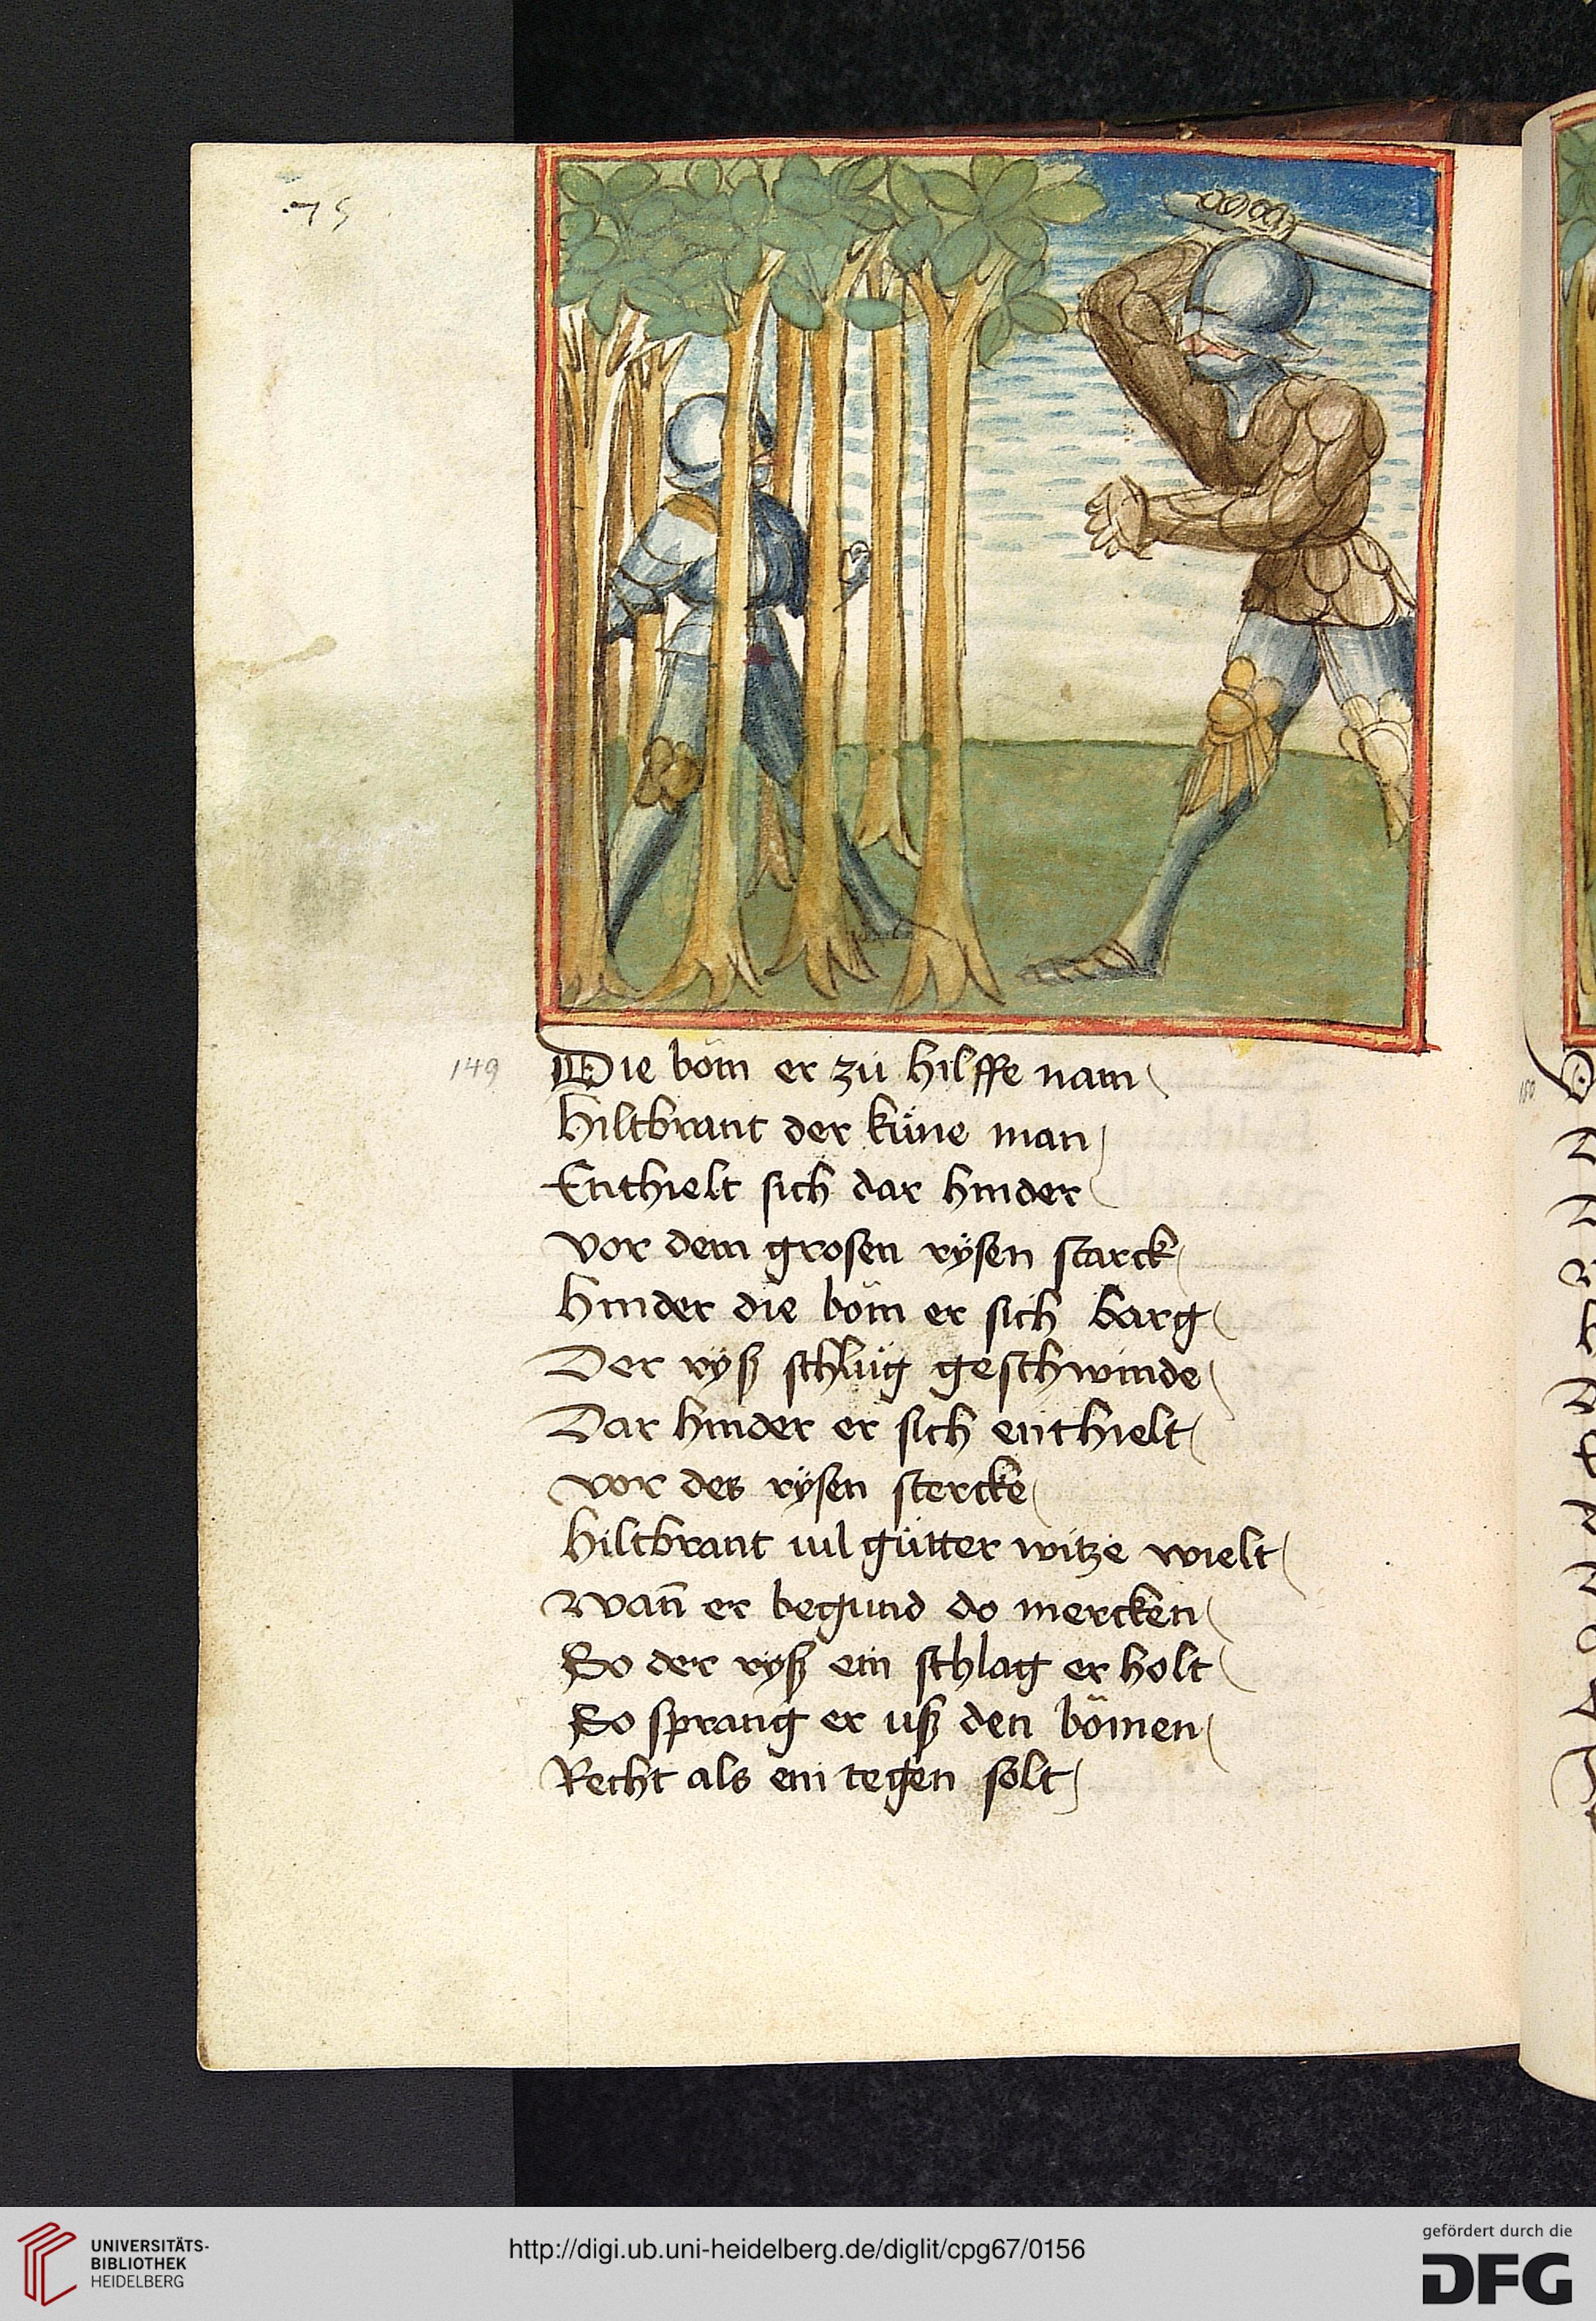 75
149
Die böm er zü hilffe nam
Hiltbrant der küne man
Enthielt sich dar hinder
Vor dem grosen rÿsen starck
Hinder die böm er sich barg
Der ryß schlüg geschwinde
Dar hinder er sich enthielt
Vor des rÿsen stercke
Hiltbrant vil gütter witze wielt
Wan̄ er begund do mercken
So der ryß ein schlag er holt
So sprang er uß den bömen
Recht als ein tegen solt
150
UNIVERSITÄTS-
BIBLIOTHEK
HEIDELBERG
http://digi.ub.uni-heidelberg.de/diglit/cpg67/0156
gefördert durch die
DFG